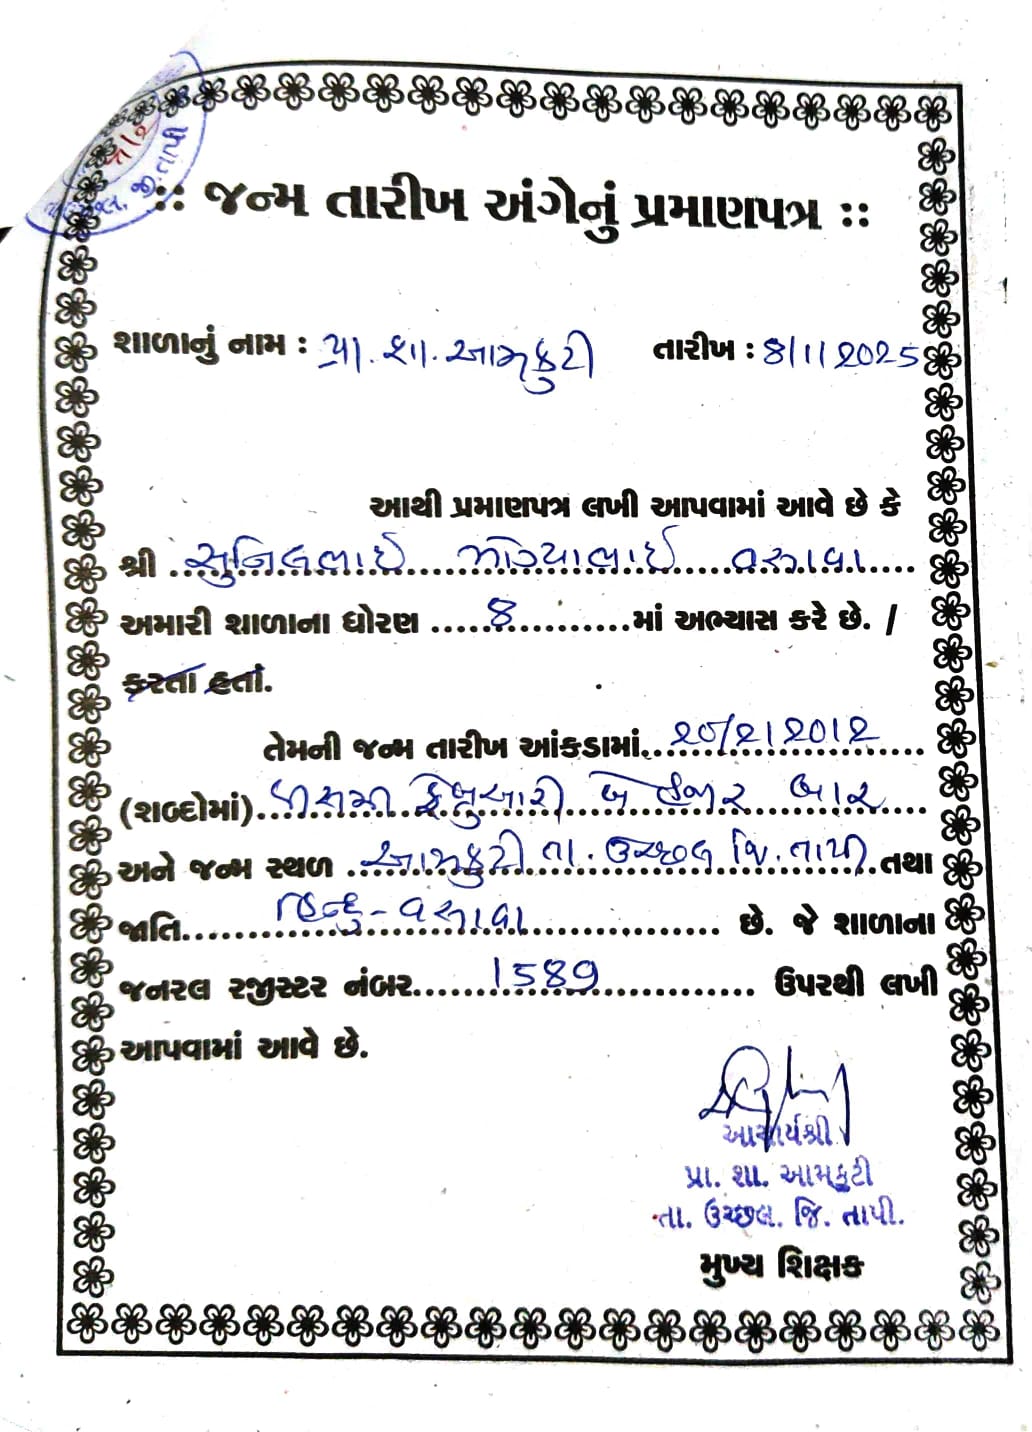 ઉચ્છલ, જી. તાપી
:: જન્મ તારીખ અંગેનું પ્રમાણપત્ર ::
શાળાનું નામ : પ્રા. શા. આમકુટી તારીખ : 8/1/2025
આથી પ્રમાણપત્ર લખી આપવામાં આવે છે કે
શ્રી સુનિલભાઈ વસાવા
અમારી શાળાના ધોરણ .....8............માં અભ્યાસ કરે છે. /
કરતા હતાં.
તેમની જન્મ તારીખ આંકડામાં 20/2/2012
(શબ્દોમાં) વીસમી ફેબ્રુઆરી બે હજાર બાર
અને જન્મ સ્થળ આમકુટી તા. ઉચ્છલ જિ. તાપી તથા
જાતિ હિન્દુ - વસાવા છે. જે શાળાના
જનરલ રજીસ્ટર નંબર 1589 ઉપરથી લખી
આપવામાં આવે છે.
આચાર્યશ્રી
પ્રા. શા. આમકુટી
તા. ઉચ્છલ. જિ. તાપી.
મુખ્ય શિક્ષક